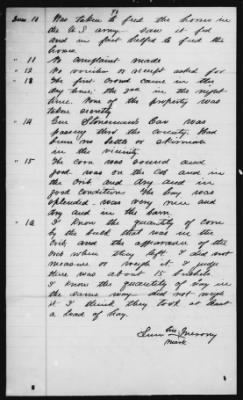 Was taken to feed the horses in
the U.S army. Saw it fed
and in fact helped to feed the
horses
" 11 No complaint made
" 12 No voucher or receipt asked for
" 13 The first crowd came in the
day time; the in the night
time. None of the property was
taken secretly
" 14 Gen Stoneman's Cav was
passing thro the vicinity. Had
been no battle or skirmish
in the vicinity
" 15 The corn was sound and
good. was on the Cob and in
the Crib and dry and in
good condition The hay was
splendid - was very nice and
dry and in the barn
" 16 I know the quantity of corn
by the bulk that was in the
Crib and the appearance of the
Crib when they left. I did not
measure or weigh it I judge
there was about 15 bushels
I know the quantity of hay in
the same way did not weigh
it I think they took at least
a load of hay.
his
mark